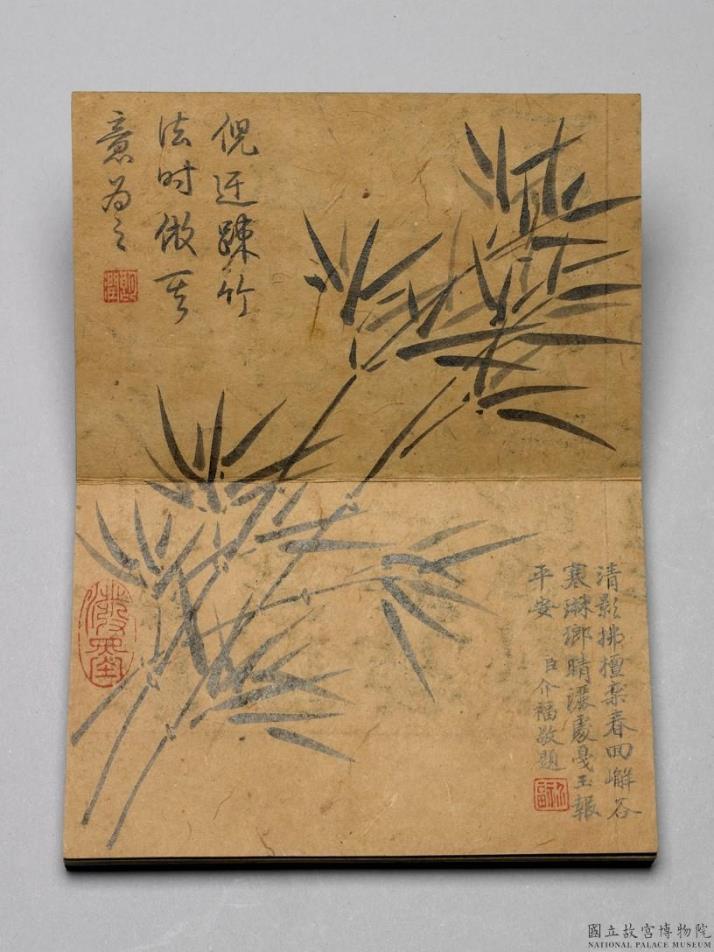 倪迂踈竹
法时倣其
意为之
清影拂檀栾春回嶰谷
寒琳瑯晴漾處戛玉報
平安 臣介福敬題
國立故宮博物院
NATIONAL PALACE MUSEUM